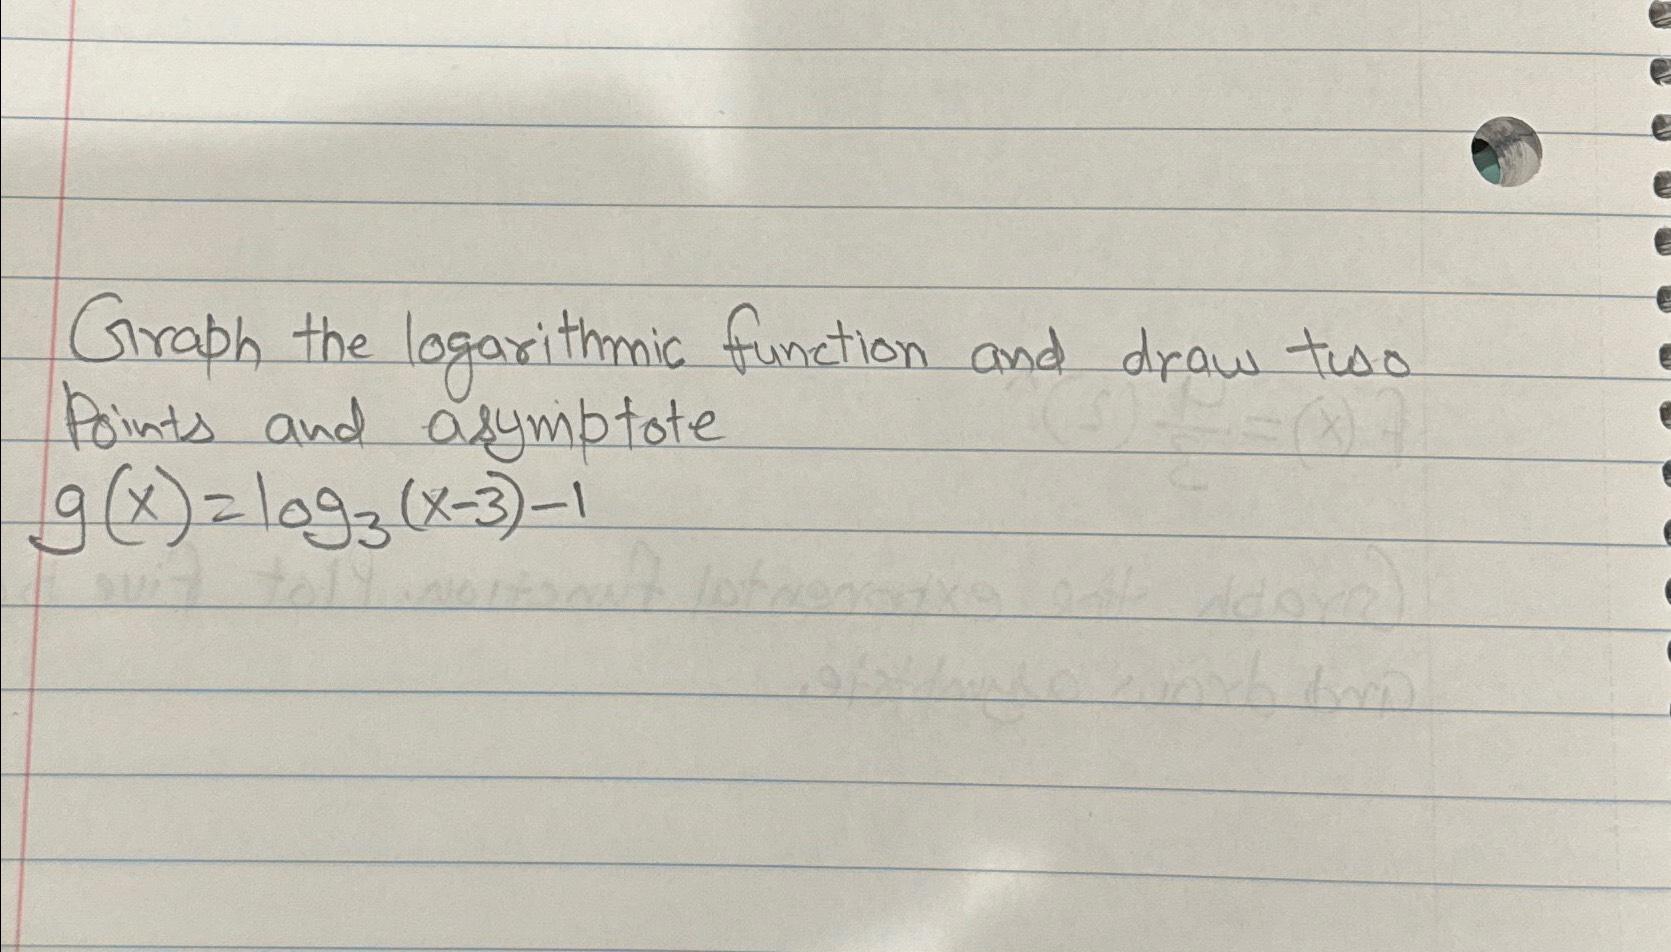 Graph the logarithmic function and draw two
Points and asymptote
g(x)=log₃(x-3)-1